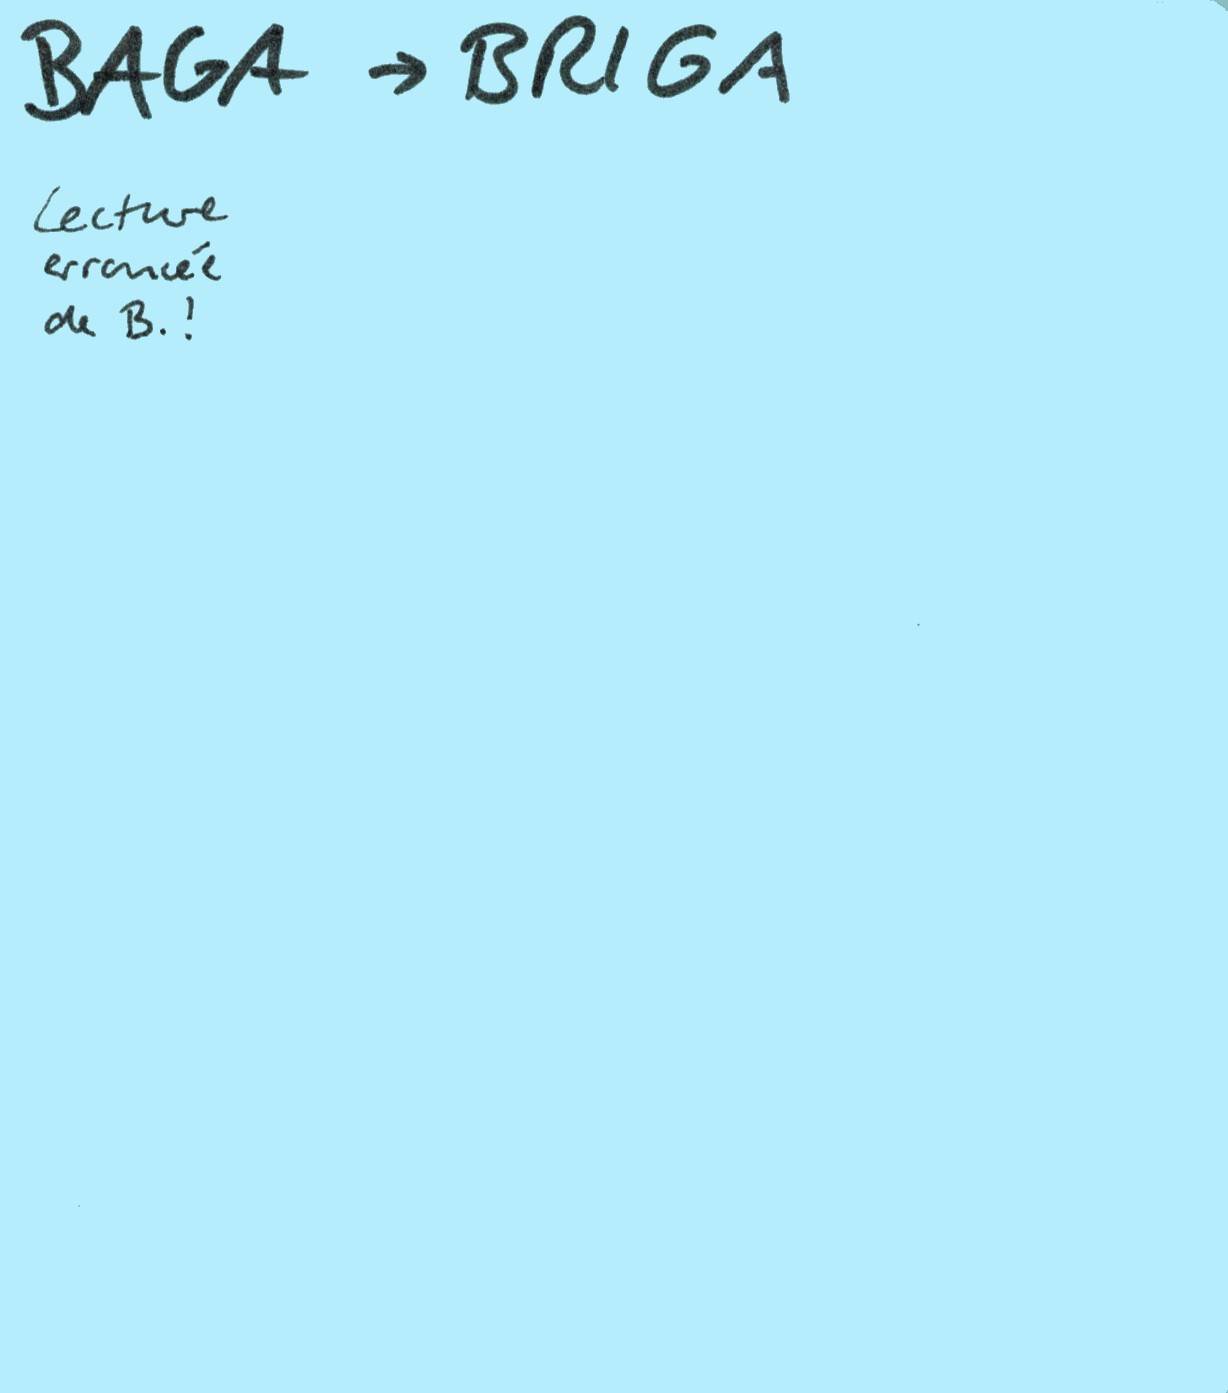 BAGA → BRIGA
Lecture
erronée
de B.!